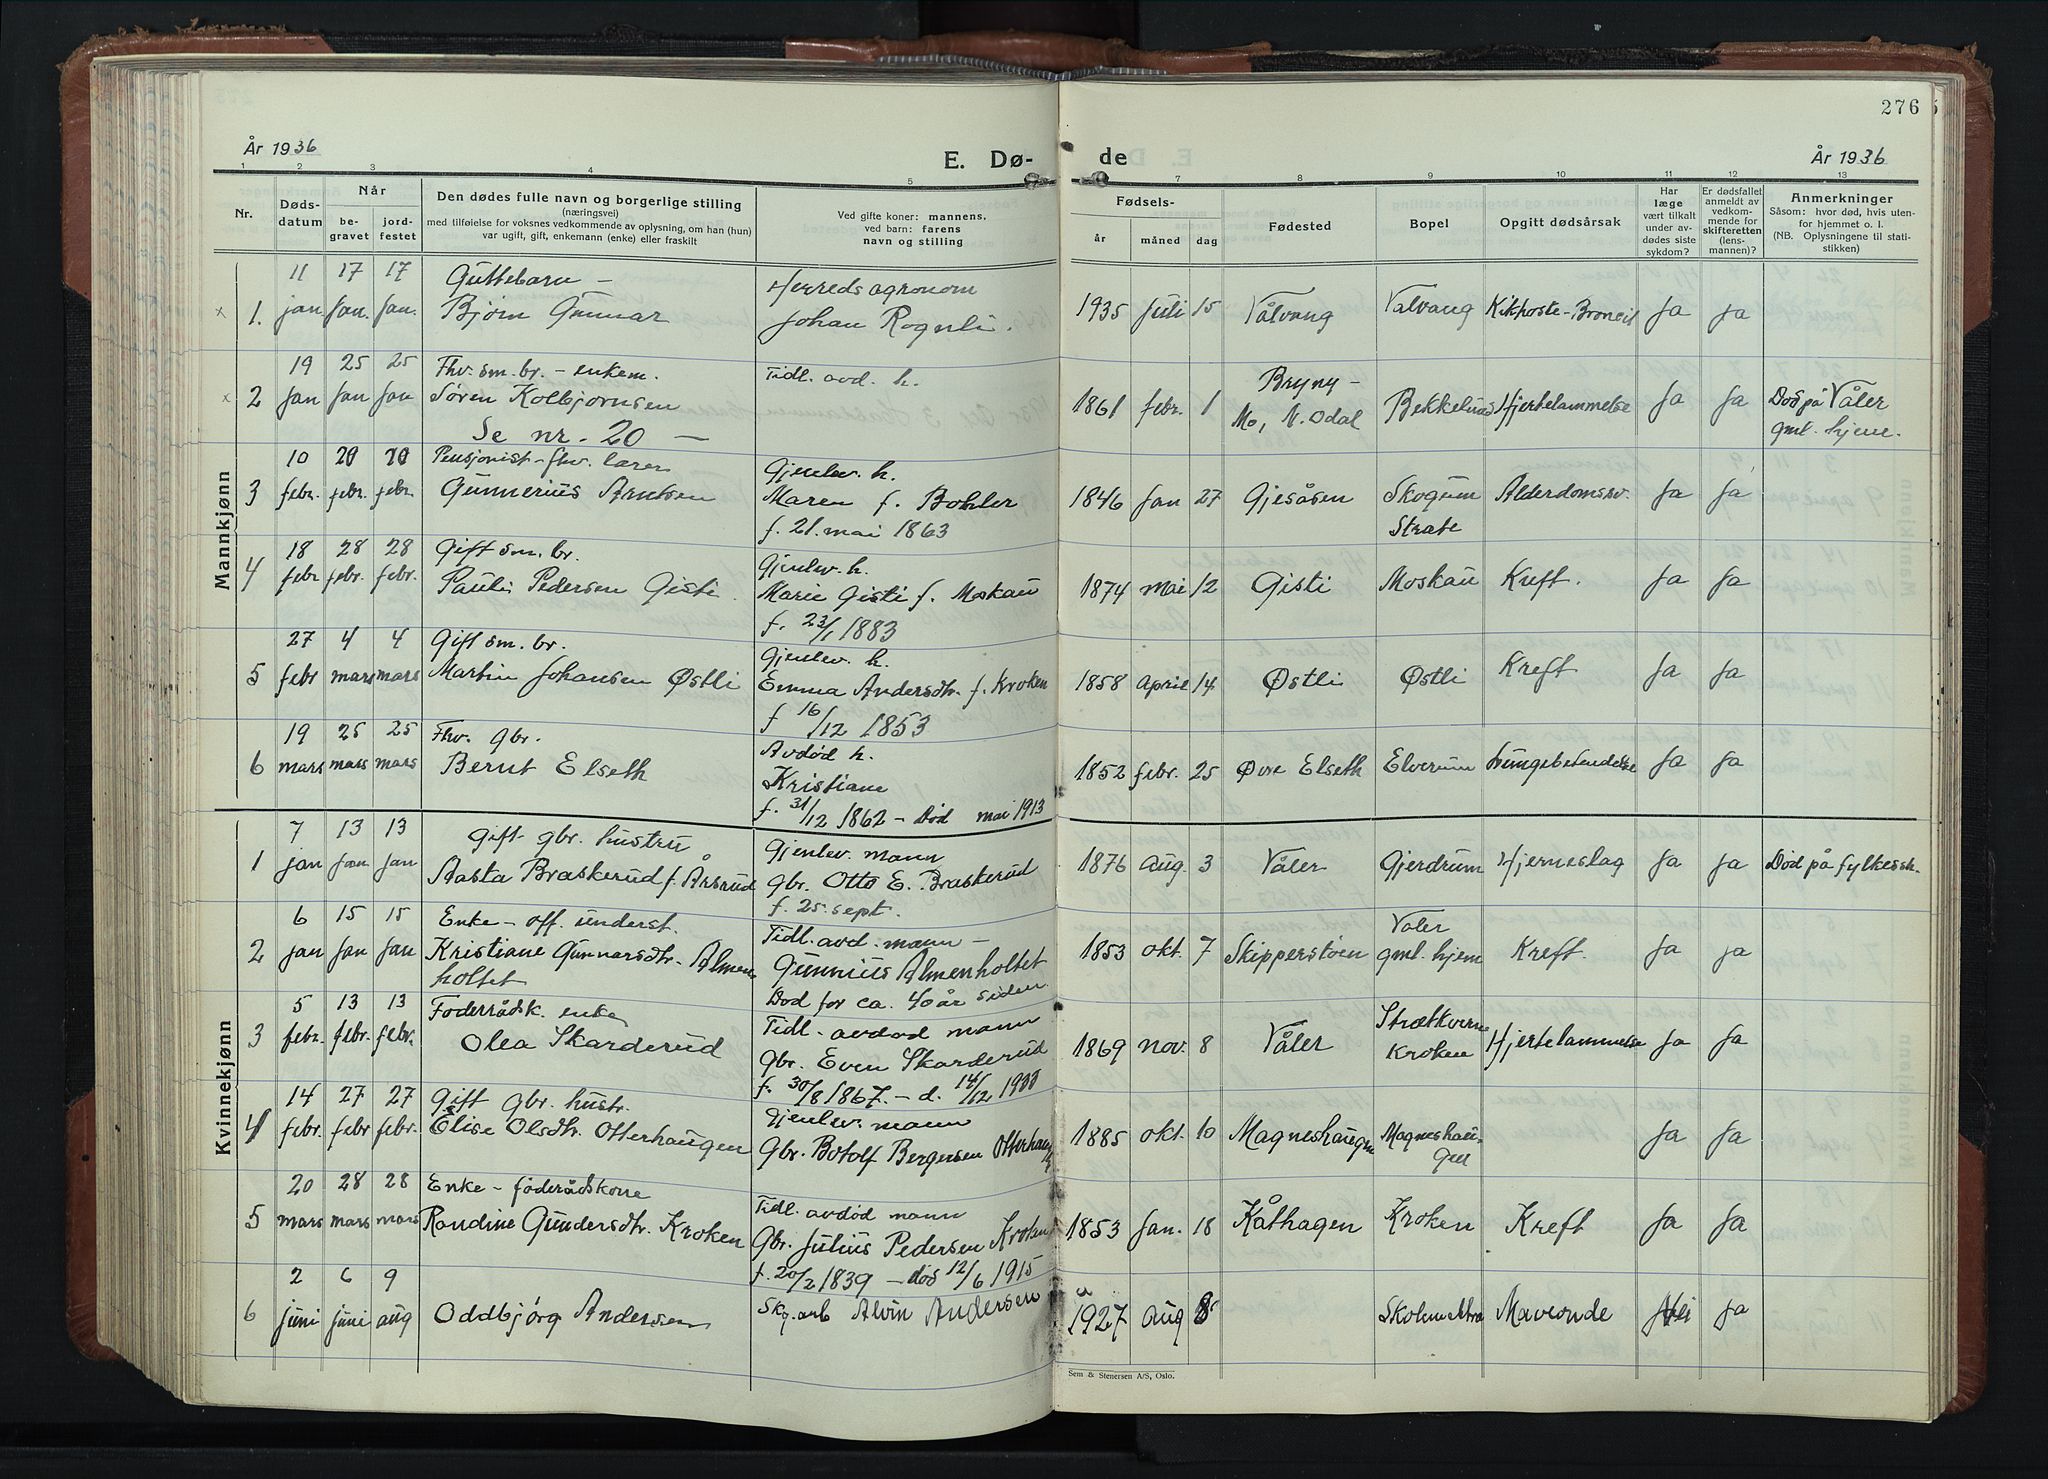 276
År 1936
E. Dø-
de
År 1936
1 2 3 4 5 7 8 9 10 11 12 13
Nr.
Døds-
datum
Når
be-
gravet
jord-
festet
Den dødes fulle navn og borgerlige stilling
(næringsvei)
med tilføielse for voksnes vedkommende av oplysning, om han (hun)
var ugift, gift, enkemann (enke) eller fraskilt
Ved gifte koner: mannens,
ved barn: farens
navn og stilling
Fødsels-
år måned dag
Fødested
Bopel
Opgitt dødsårsak
Har
læge
vært tilkalt
under av-
dødes siste
sykdom?
Er dødsfallet
anmeldt av
vedkom-
mende for
skifteretten
(lens-
mannen)?
Anmerkninger
Såsom: hvor død, hvis uten-
for hjemmet o. l.
(NB. Oplysningene til stati-
stikken)
Mannkjønn
11 17 17 Guttebarn - Herredsagronom
x 1. jan jan. jan. Bjørn Gunnar Johan Rognli. 1935 Juli 15 Vålvang Valvang Kikhoste - Ja Ja
19 25 25 Fhv. sm. br. - enkem. Tidl. avd. h. Bryny -
x 2 Jan Jan Jan Søren Kolbjørnsen 1861 febr. 1 Mo, N. Odal Bekkelund Hjertelammelse Ja Ja Død på Våler
Se nr. 20 — gml. hjem.
10 20 20 Pensjonist - fhv. lærer Gjenlev. h.
3 febr. febr. febr. Gunnerius Arntsen Maren f. Bohler 1846 Jan 27 Gjesåsen Skogum Alderdomssv. Ja Ja
f. 21. mai 1863 Strate
18 28 28 Gift sm. br. Gjenlev. h.
4 febr febr. febr. Pauli Pedersen Gisti. Marie Gisti f. Moskau 1874 mai 12 Gisti Moskau Kreft. Ja Ja
f. 23/1 1883
27 4 4 Gift sm. br. Gjenlev. h.
5 febr mars mars Martin Johansen Østli Emma Andersdtr. f. Kroken 1858 April 14 Østli Østli Kreft Ja Ja
f 16/12 1853
19 25 25 Fhv. gbr. Avdød h.
6 mars mars mars Bernt Elseth Kristiane 1852 febr. 25 Øvre Elseth Elverum Lungebetendelse Ja Ja
f. 31/12 1862 - Død mai 1913
Kvinnekjønn
7 13 13 gift gbr. hustru Gjenlev. mann
1 jan Jan jan Aasta Braskerud f. Årsrud gbr. Otto E. Braskerud 1876 Aug. 3 Våler Gjerdrum Hjerneslag Ja Ja Død på fylkessk.
f. 25. sept.
6 15 15 Enke - off. underst. Tidl. avd. mann - Våler
2 jan Jan Jan Kristiane Gunnarsdtr. Almen Gunnius Almenholtet 1853 okt. 7 Skipperstøen gml. hjem Kreft. Ja Ja
holtet Død for ca. 40 år siden.
5 13 13 Foderrådsk. enke Tidl. avdød mann
3 febr. febr. febr. Olea Skarderud gbr. Even Skarderud 1869 nov. 8 Våler Strætkverne Kroken Hjertelammelse Ja Ja
f. 30/8 1867. - d. 14/12 1933
14 27 27 Gift gbr. hustr. Gjenlev. mann
4 febr. febr febr. Elise Olsdtr. Otterhaugen Gbr. Botolf Bergersen 1885 okt. 10 Magneshaugen Magneshau-
gen Ja Ja
20 28 28 Enke - føderådskone Tidl. avdød mann
5 mars mars mars Randine Gundersdtr. Kroken Gbr. Julius Pedersen Kroken 1853 Jan. 18 Kåthagen Kroken Kreft Ja Ja
f. 20/2 1839 - død 12/6 1915
2 6 9
6 juni juni aug Oddbjørg Andersen Skg. arb Alvin Andersen 1927 Aug Nei Ja
Sem & Stenersen A/S, Oslo.